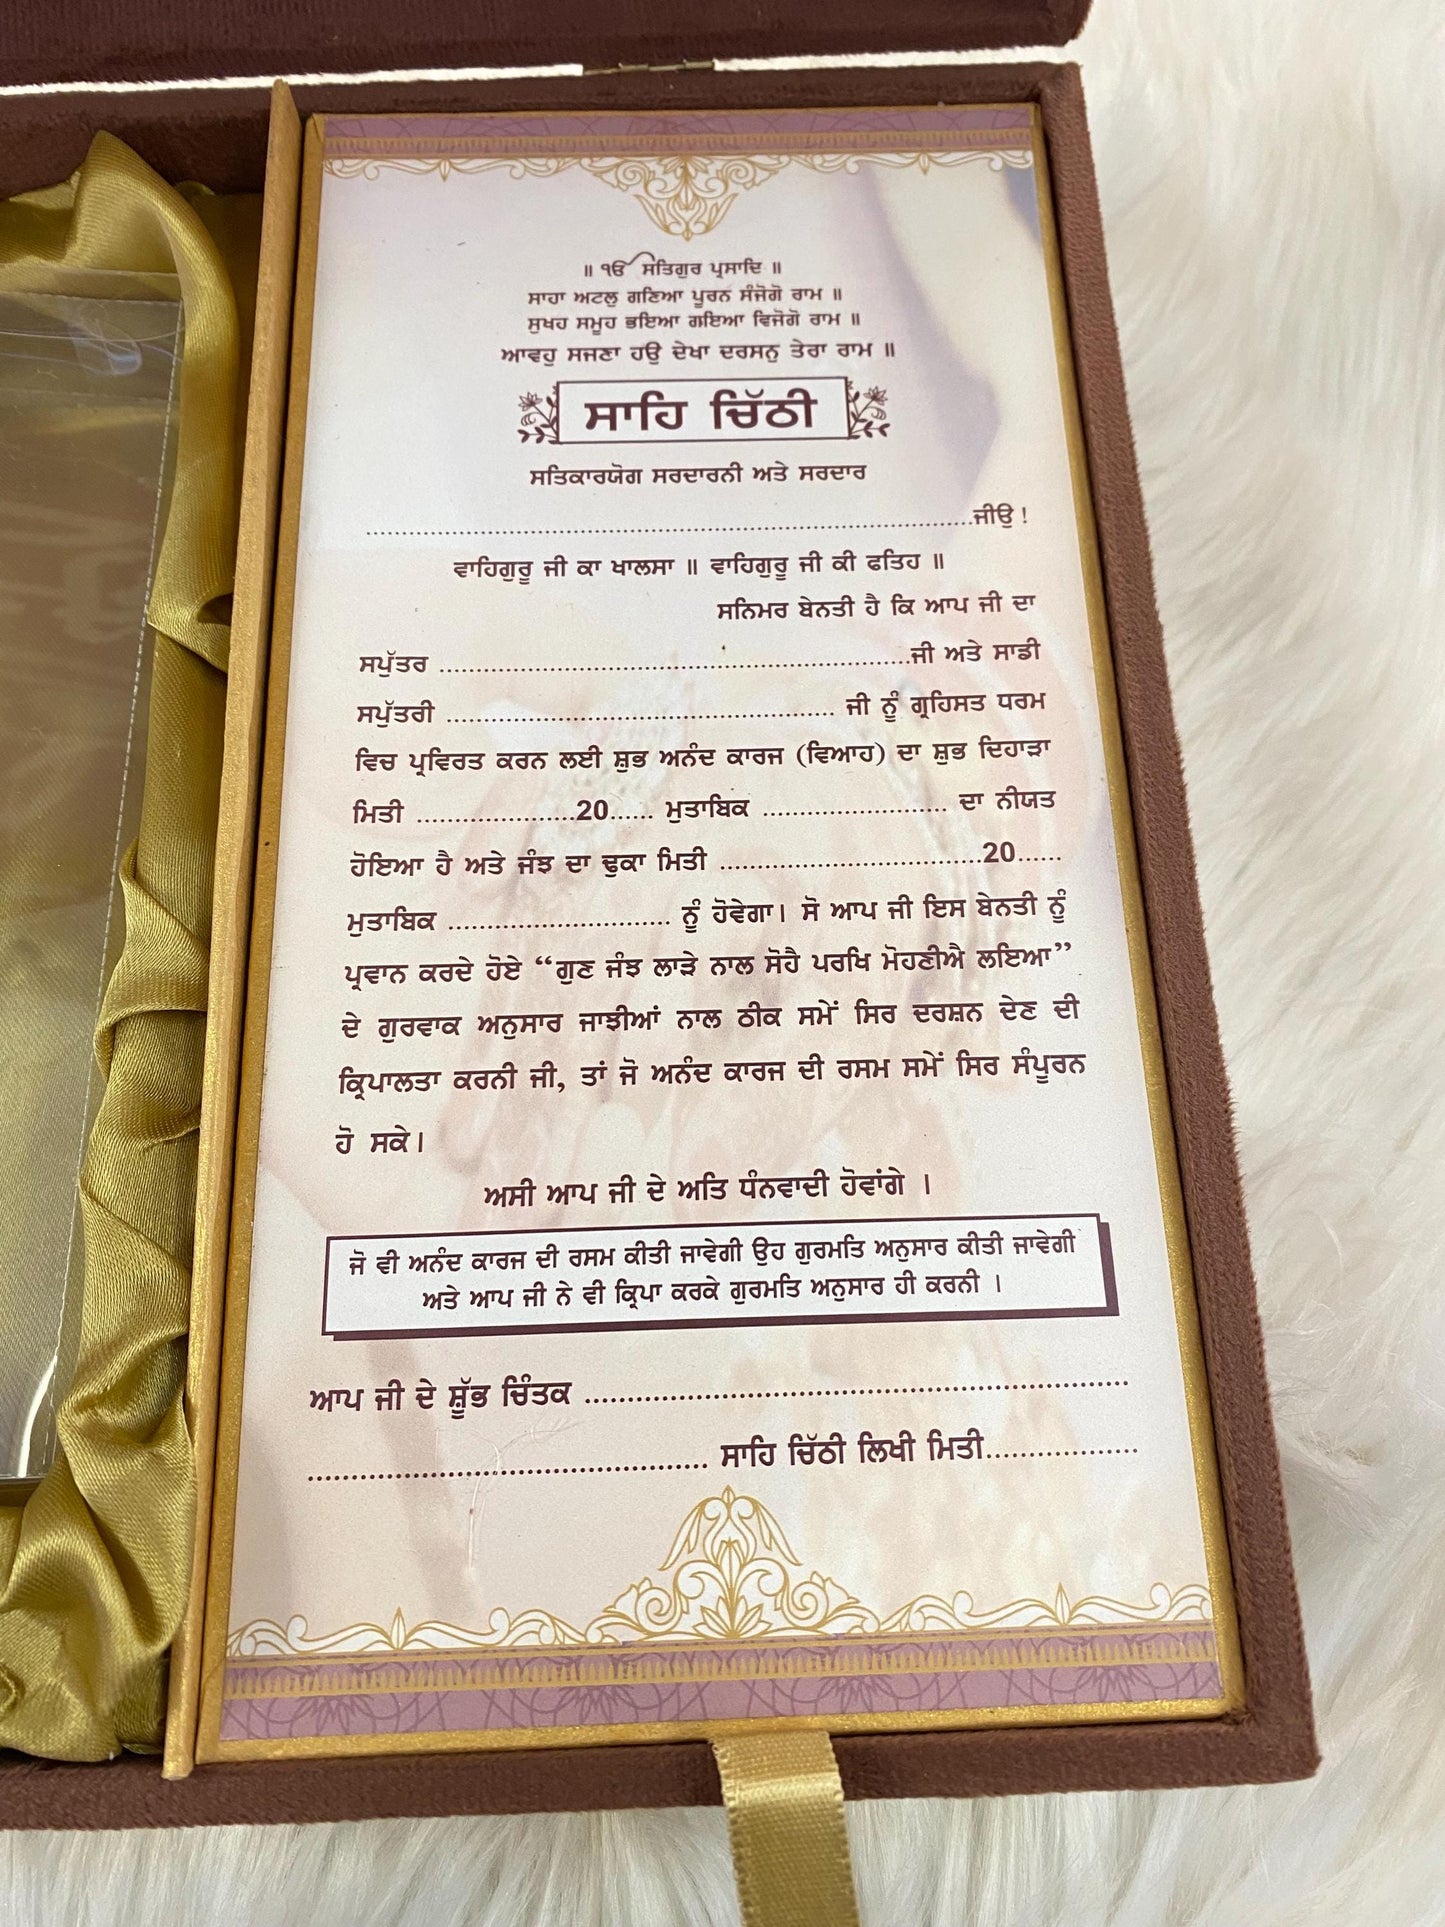 ॥ ੴ ਸਤਿਗੁਰ ਪ੍ਰਸਾਦਿ ॥
ਸਾਹਾ ਅਟਲੁ ਗਣਿਆ ਪੂਰਨ ਸੰਜੋਗੋ ਰਾਮ ॥
ਸੁਖਹ ਸਮੂਹ ਭਇਆ ਗਇਆ ਵਿਜੋਗੋ ਰਾਮ ॥
ਆਵਹੁ ਸਜਣਾ ਹਉ ਦੇਖਾ ਦਰਸਨੁ ਤੇਰਾ ਰਾਮ ॥
ਸਾਹਿ ਚਿੱਠੀ
ਸਤਿਕਾਰਯੋਗ ਸਰਦਾਰਨੀ ਅਤੇ ਸਰਦਾਰ
....................ਜੀਉ !
ਵਾਹਿਗੁਰੂ ਜੀ ਕਾ ਖਾਲਸਾ ॥ ਵਾਹਿਗੁਰੂ ਜੀ ਕੀ ਫਤਿਹ ॥
ਸਨਿਮਰ ਬੇਨਤੀ ਹੈ ਕਿ ਆਪ ਜੀ ਦਾ
ਸਪੁੱਤਰ ....................ਜੀ ਅਤੇ ਸਾਡੀ
ਸਪੁੱਤਰੀ .................... ਜੀ ਨੂੰ ਗ੍ਰਹਿਸਤ ਧਰਮ
ਵਿਚ ਪ੍ਰਵਿਰਤ ਕਰਨ ਲਈ ਸ਼ੁਭ ਅਨੰਦ ਕਾਰਜ (ਵਿਆਹ) ਦਾ ਸ਼ੁਭ ਦਿਹਾੜਾ
ਮਿਤੀ ....................20...... ਮੁਤਾਬਿਕ .................... ਦਾ ਨੀਯਤ
ਹੋਇਆ ਹੈ ਅਤੇ ਜੰਝ ਦਾ ਢੁਕਾ ਮਿਤੀ ....................20......
ਮੁਤਾਬਿਕ .................... ਨੂੰ ਹੋਵੇਗਾ। ਸੋ ਆਪ ਜੀ ਇਸ ਬੇਨਤੀ ਨੂੰ
ਪ੍ਰਵਾਨ ਕਰਦੇ ਹੋਏ “ਗੁਣ ਜੰਝ ਲਾੜੇ ਨਾਲ ਸੋਹੈ ਪਰਖਿ ਮੋਹਣੀਐ ਲਇਆ”
ਦੇ ਗੁਰਵਾਕ ਅਨੁਸਾਰ ਜਾਞੀਆਂ ਨਾਲ ਠੀਕ ਸਮੇਂ ਸਿਰ ਦਰਸ਼ਨ ਦੇਣ ਦੀ
ਕ੍ਰਿਪਾਲਤਾ ਕਰਨੀ ਜੀ, ਤਾਂ ਜੋ ਅਨੰਦ ਕਾਰਜ ਦੀ ਰਸਮ ਸਮੇਂ ਸਿਰ ਸੰਪੂਰਨ
ਹੋ ਸਕੇ।
ਅਸੀ ਆਪ ਜੀ ਦੇ ਅਤਿ ਧੰਨਵਾਦੀ ਹੋਵਾਂਗੇ ।
ਜੋ ਵੀ ਅਨੰਦ ਕਾਰਜ ਦੀ ਰਸਮ ਕੀਤੀ ਜਾਵੇਗੀ ਉਹ ਗੁਰਮਤਿ ਅਨੁਸਾਰ ਕੀਤੀ ਜਾਵੇਗੀ
ਅਤੇ ਆਪ ਜੀ ਨੇ ਵੀ ਕ੍ਰਿਪਾ ਕਰਕੇ ਗੁਰਮਤਿ ਅਨੁਸਾਰ ਹੀ ਕਰਨੀ ।
ਆਪ ਜੀ ਦੇ ਸ਼ੁੱਭ ਚਿੰਤਕ ....................
.................... ਸਾਹਿ ਚਿੱਠੀ ਲਿਖੀ ਮਿਤੀ....................